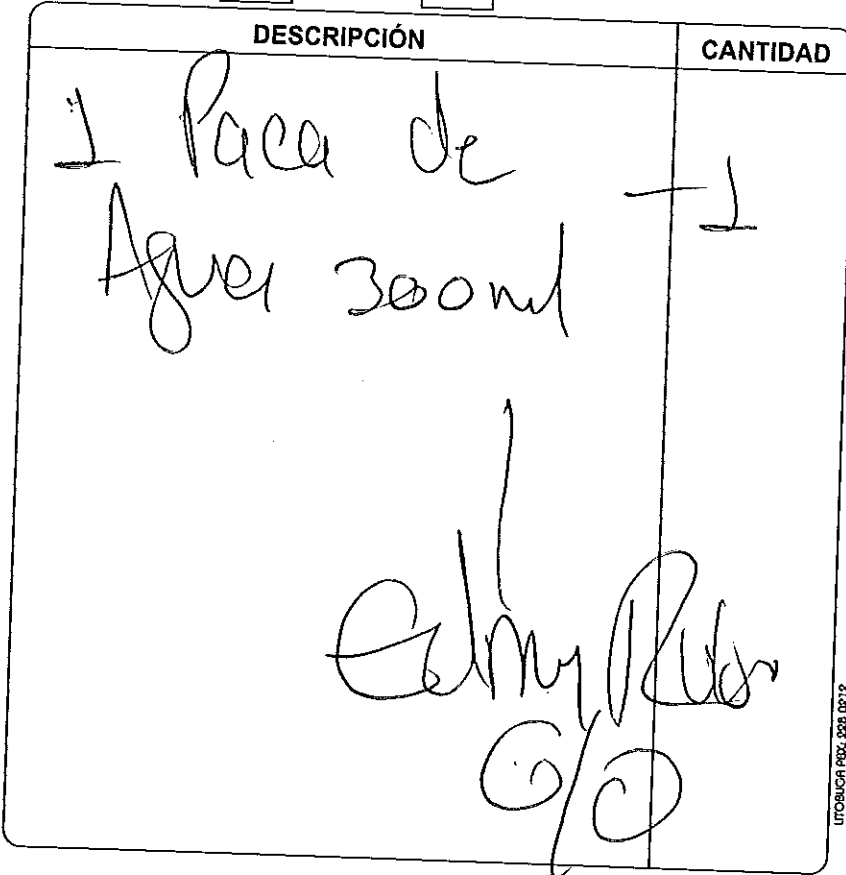 DESCRIPCIÓN CANTIDAD
1 Paca de
Agua 300ml —1
G/O
LITOBUCA PBX: 228 0212